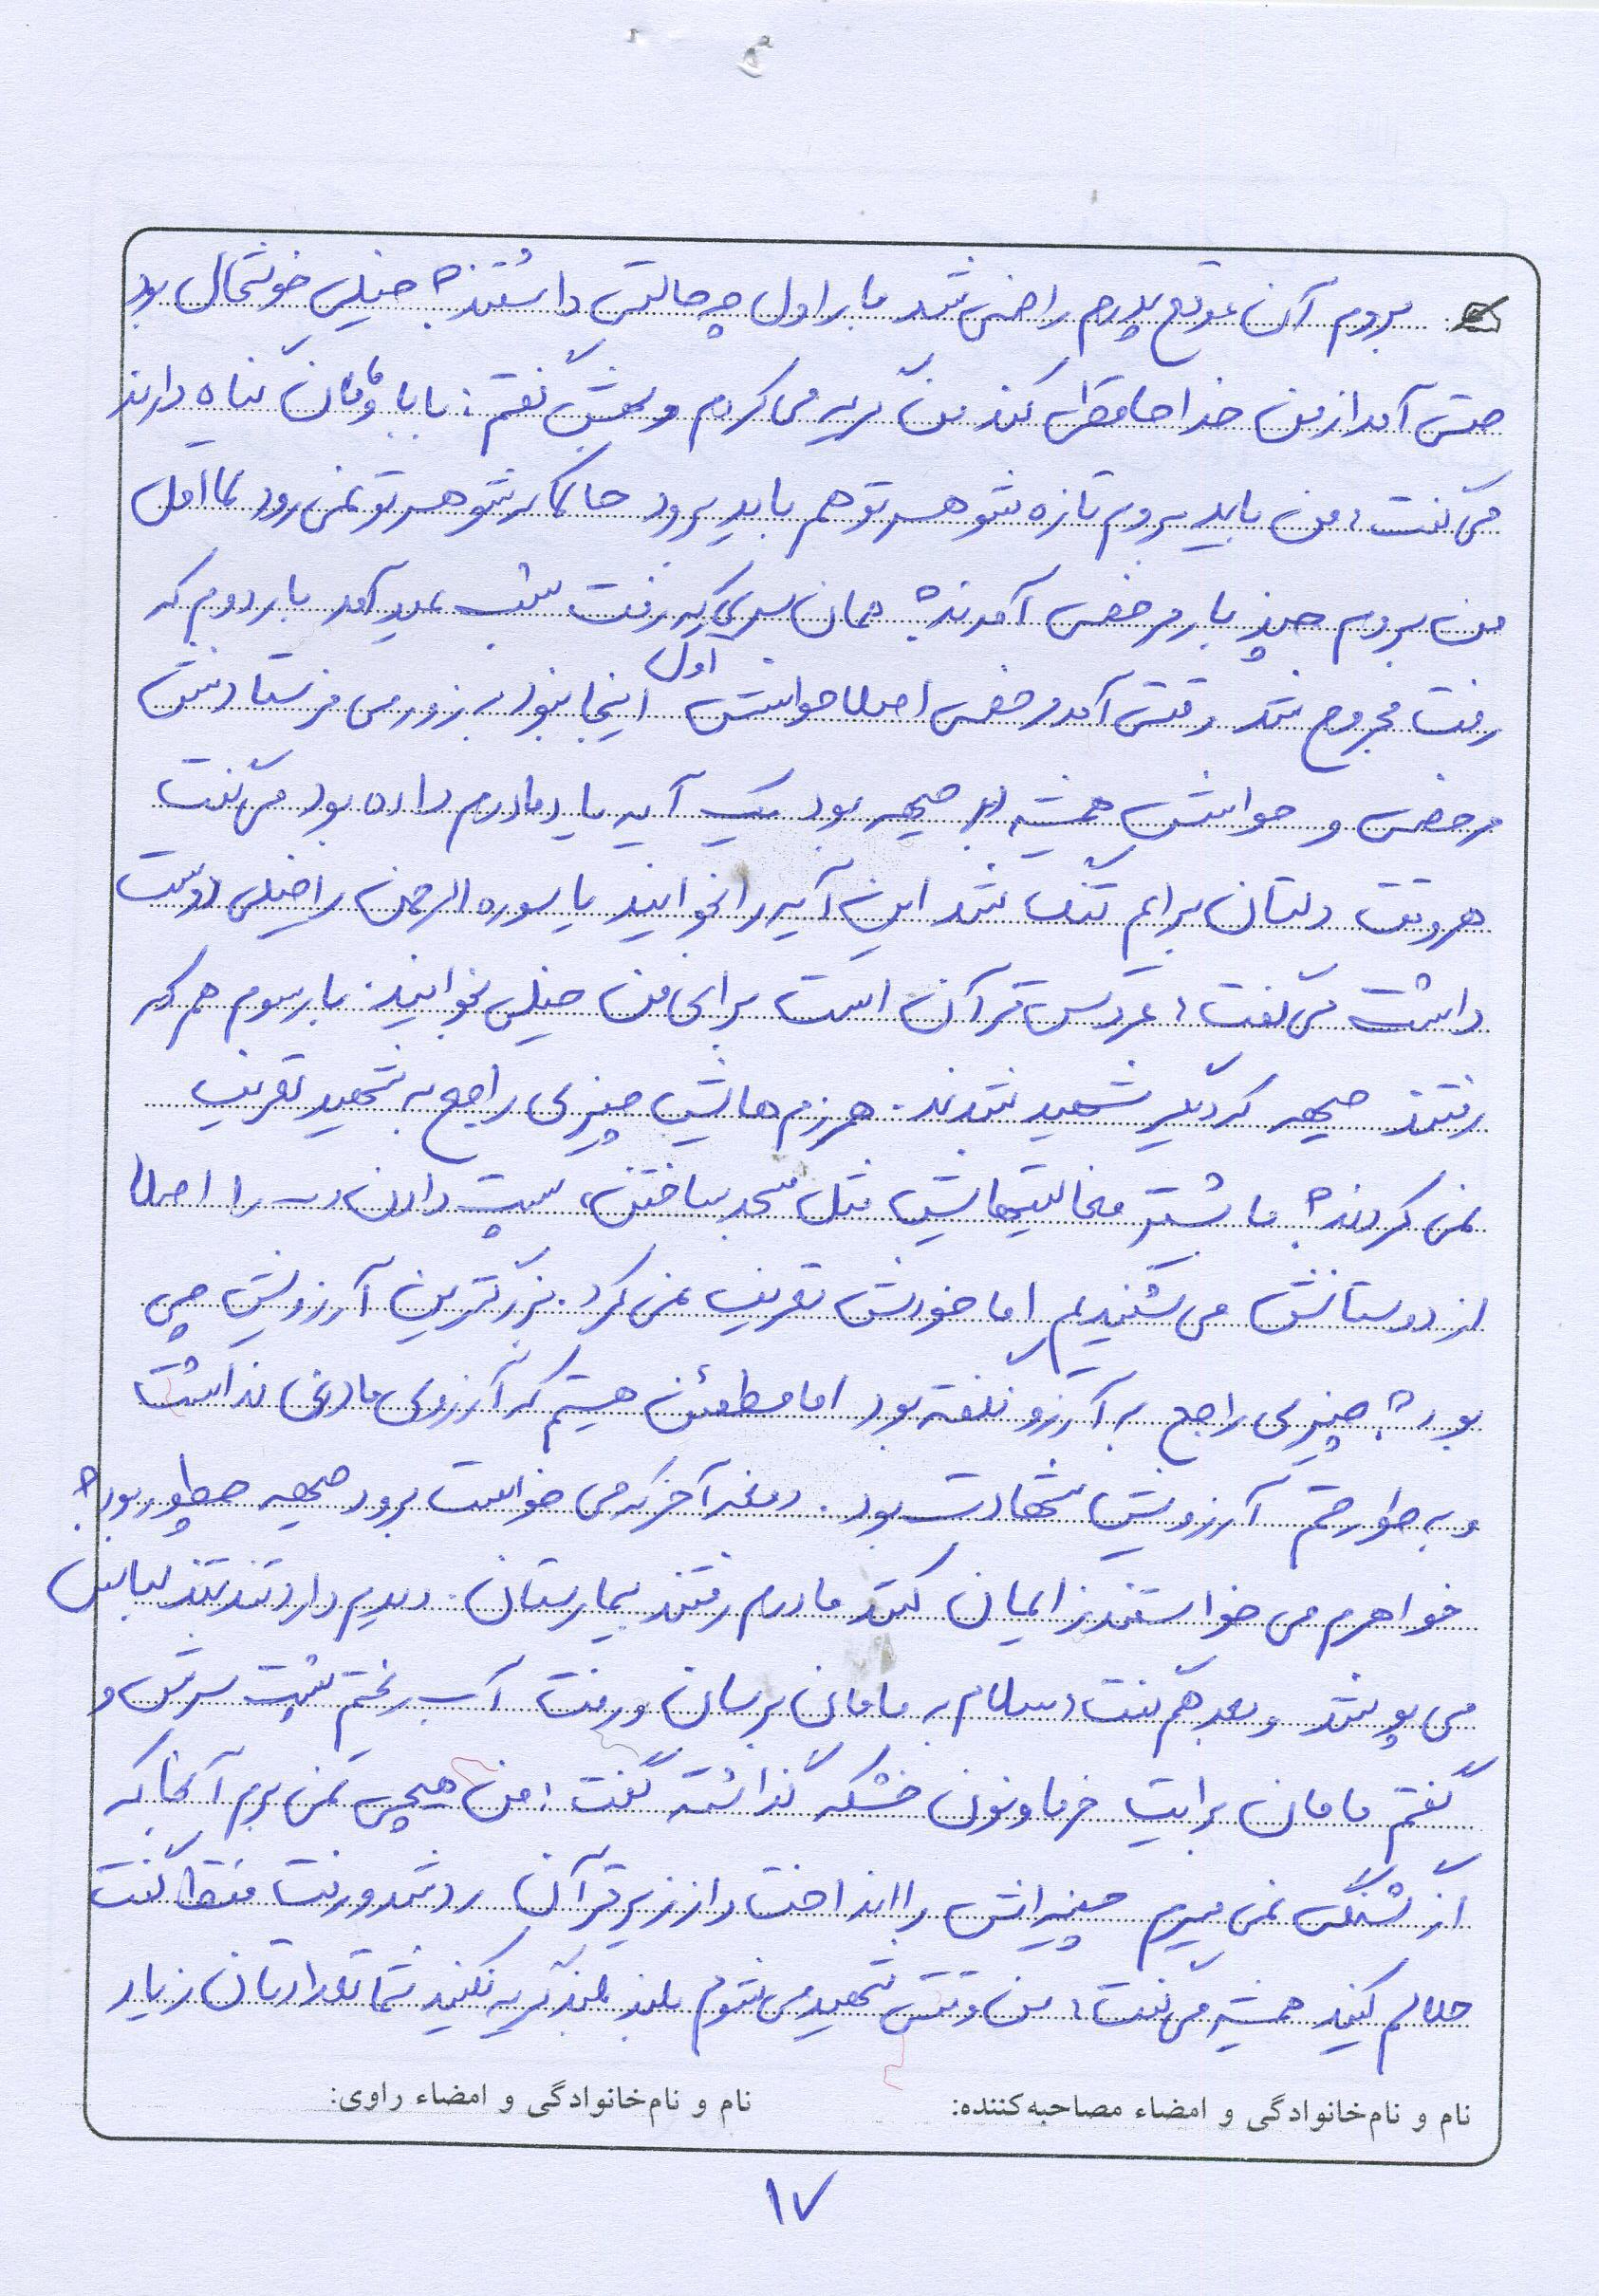 بروم آن موقع پدرم راضی شد بار اول چه حالتی داشتند؟ خیلی خوشحال بود
حتی آمد از من خداحافظی کند من گریه می کردم و بهش گفتم: بابا و مامان گناه دارند
می گفت: من باید بروم تازه شوهر تو هم باید برود حالا که شوهر تو نمی رود لااقل
من بروم چند بار مرخصی آمدند؟ همان سری که رفت شب عید آمد بار دوم که
رفت مجروح شد وقتی آمد مرخصی اصلا حواسش اول اینجا نبود به زور می فرستادنش
مرخصی و حواسش همیشه به جبهه بود یک آیه یاد مادرم داده بود می گفت
هر وقت دلتان برایم تنگ شد این آیه را بخوانید یا سوره الرحمن را خیلی دوست
داشت می گفت: عروس قرآن است برای من خیلی بخوانید. بار سوم هم که
رفتند جبهه که دیگر شهید شدند. همرزم هایش چیزی راجع به شهید تعریف
نمی کردند؟ ما بیشتر فعالیتهایش مثل مسجد ساختن، پست دادن را اصلا
از دوستانش می شنیدیم اما خودش تعریف نمی کرد. بزرگترین آرزویش چی
بود؟ چیزی راجع به آرزو نگفته بود اما مطمئن هستم که آرزوی مادی نداشت
و به طور حتم آرزویش شهادت بود. دفعه آخر که می خواست برود جبهه چطور بود؟
خواهرم می خواستند زایمان کنند مادرم رفتند بیمارستان. دیدم دارد تند تند لباس
می پوشد و بعد هم گفت: سلام به مامان برسان و رفت آب ریختم پشت سرش و
گفتم مامان برایت خرما و نون خشکه گذاشته گفت: من هیچی نمی برم آنجا که
از تشنگی نمی میرم چیزهایش را انداخت و از زیر قرآن رد شد و رفت فقط گفت
حلالم کنید همیشه می گفت: من وقتی شهید می شوم بلند بلند گریه نکنید شما تعدادتان زیاد
نام و نام‌خانوادگی و امضاء مصاحبه‌کننده: نام و نام‌خانوادگی و امضاء راوی:
۱۷